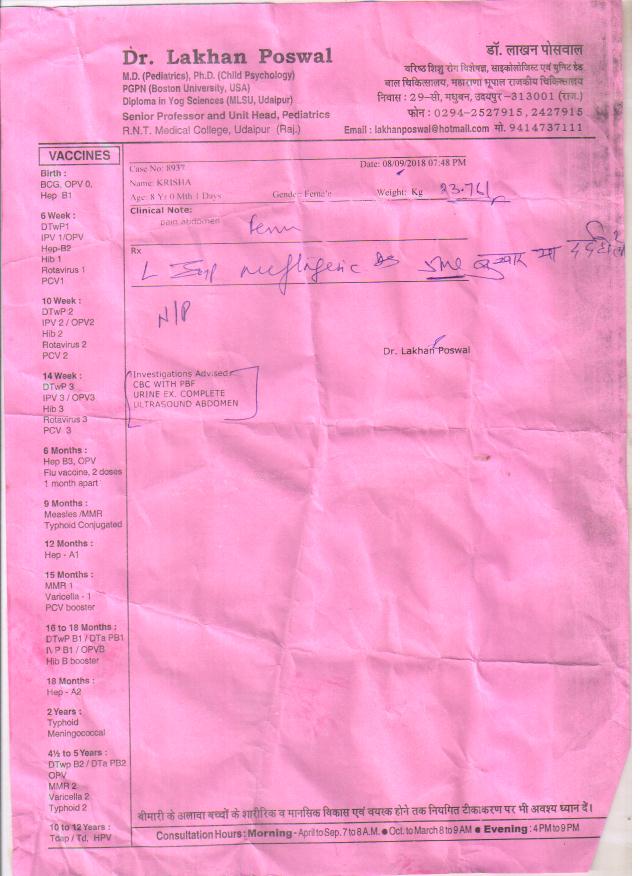 Dr. Lakhan Poswal
M.D. (Pediatrics), Ph.D. (Child Psychology)
PGPN (Boston University, USA)
Diploma in Yog Sciences (MLSU, Udaipur)
Senior Professor and Unit Head, Pediatrics
R.N.T. Medical College, Udaipur (Raj.)
डॉ. लाखन पोसवाल
वरिष्ठ शिशु रोग विशेषज्ञ, साइकोलोजिस्ट एवं यूनिट हेड
बाल चिकित्सालय, महाराणा भूपाल राजकीय चिकित्सालय
निवास : 29-सी, मधुबन, उदयपुर-313001 (राज.)
फोन : 0294-2527915, 2427915
Email : lakhanposwal@hotmail.com मो. 9414737111
VACCINES
Birth :
BCG, OPV 0,
Hep B1
6 Week :
DTwP1
IPV 1/OPV
Hep-B2
Hib 1
Rotavirus 1
PCV1
10 Week :
DTwP 2
IPV 2 / OPV2
Hib 2
Rotavirus 2
PCV 2
14 Week :
DTwP 3
IPV 3 / OPV3
Hib 3
Rotavirus 3
PCV 3
6 Months :
Hep B3, OPV
Flu vaccine, 2 doses
1 month apart
9 Months :
Measles /MMR
Typhoid Conjugated
12 Months :
Hep - A1
15 Months :
MMR 1
Varicella - 1
PCV booster
16 to 18 Months :
DTwP B1 / DTa PB1
IVP B1 / OPVB
Hib B booster
18 Months :
Hep - A2
2 Years :
Typhoid
Meningococcal
4½ to 5 Years :
DTwp B2 / DTa PB2
OPV
MMR 2
Varicella 2
Typhoid 2
10 to 12 Years :
Tdap / Td, HPV
Case No: 8937 Date: 08/09/2018 07:48 PM
Name: KRISHA
Age: 8 Yr 0 Mth 1 Days Gender: Female Weight: Kg
Clinical Note:
pain abdomen
Rx
बुखार या दर्द हो तो
N/P
Dr. Lakhan Poswal
Investigations Advised:
CBC WITH PBF
URINE EX. COMPLETE
ULTRASOUND ABDOMEN
बीमारी के अलावा बच्चों के शारीरिक व मानसिक विकास एवं वयस्क होने तक नियमित टीकाकरण पर भी अवश्य ध्यान दें।
Consultation Hours : Morning - April to Sep. 7 to 8 A.M. ● Oct. to March 8 to 9 AM ● Evening : 4 PM to 9 PM